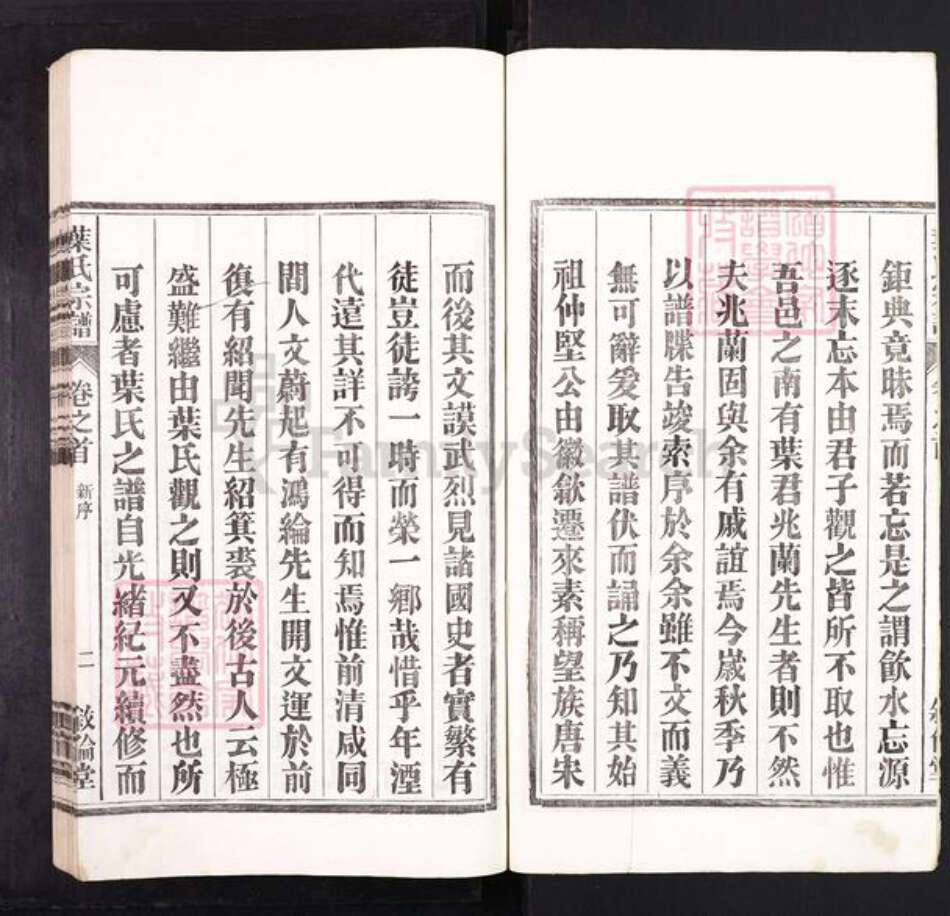 鉅典竟昧焉而若忘是之謂飲水忘源
逐末忘本由君子觀之皆所不取也惟
吾邑之南有葉君兆蘭先生者則不然
夫兆蘭固與余有戚誼焉今歲秋季乃
以譜牒告竣索序於余余雖不文而義
無可辭爰取其譜伏而誦之乃知其始
祖仲堅公由徽歙遷來素稱望族唐宋
而後其文謨武烈見諸國史者實繁有
徒豈徒誇一時而榮一鄉哉惜乎年湮
代遠其詳不可得而知焉惟前清咸同
間人文蔚起有鴻綸先生開文運於前
復有紹聞先生紹箕裘於後古人云極
盛難繼由葉氏觀之則又不盡然也所
可慮者葉氏之譜自光緒紀元續修而
葉氏宗譜 卷之首 新序 二 敘倫堂
FamilySearch